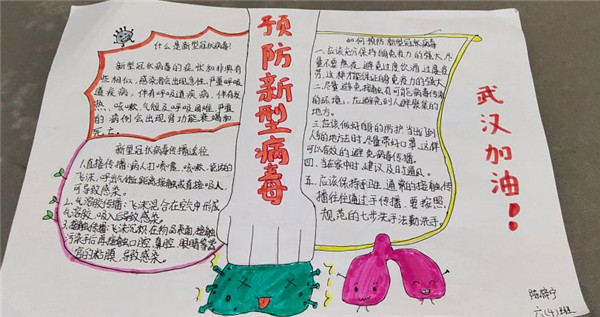 什么是新型冠状病毒!
新型冠状病毒的症状和非典有
些相似,感染者会出现急性、严重呼吸
道疾病,伴有呼吸道疾病,伴有发
热、咳嗽、气短及呼吸困难,严重
的病例会出现肾功能衰竭和
死亡。
新型冠状病毒传播途径
1.直接传播:病人打喷嚏、咳嗽、说话的
飞沫,呼出气体近距离接触或直接吸入,
可导致感染。
2.气溶胶传播:飞沫混合在空气中形成
气溶胶,吸入后导致感染。
3.接触传播:飞沫沉积在物品表面,接触
污染手后再接触口腔、鼻腔、眼睛等器
官的粘膜,导致感染。
预防新型病毒
如何预防新型冠状病毒
一、应该充分保持睡免疫力的强大,尽
量不要熬夜,避免过度饮酒,过度劳
累,这样才能保证睡免疫力的强大
二、尽量避免接触有可能有病毒传播
的环境,应避免到人群聚集的
地方。
三、应该做好自身的防护,当出门到
人多的地方去时,尽量带好口罩,这样
可以有效的避免病毒传播。
四、当在家中时,建议及时通风。
五、应该保持手卫生,通常的接触传
播往往通过手传播,要按照
规范的七步洗手法勤洗手。
武汉加油!
六(4)班